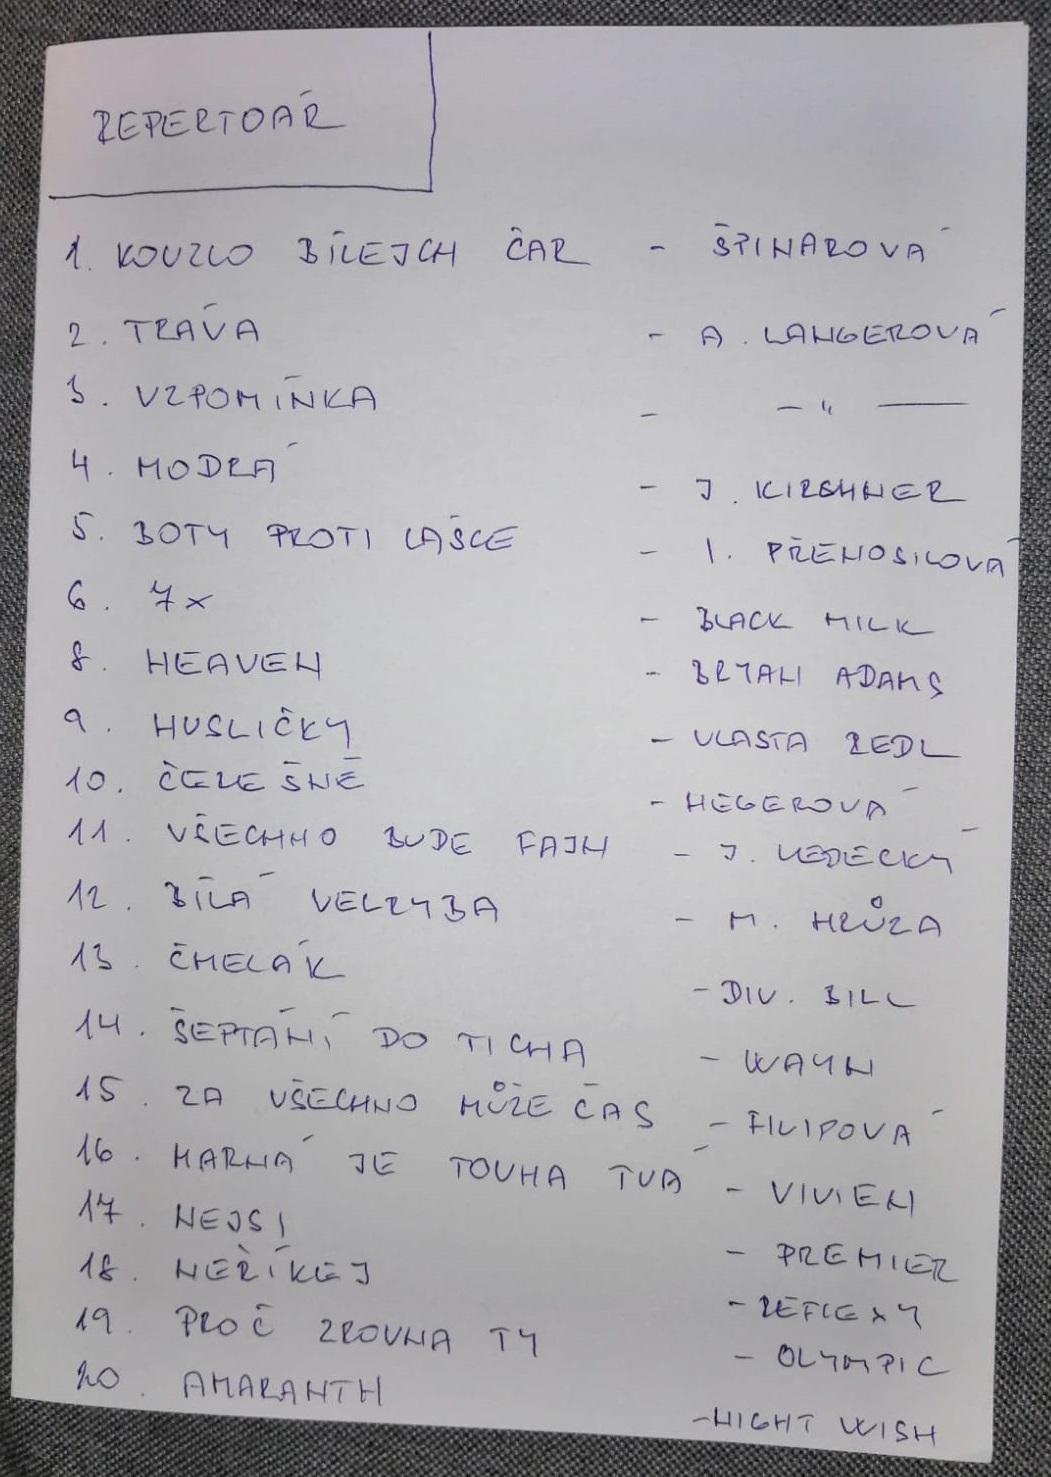 REPERTOÁR
1. KOUZLO BÍLEJCH ČAR - ŠPINAROVÁ
2. TRÁVA - A. LANGEROVÁ
3. VZPOMÍNKA - - " —
4. MODRÁ - J. KIRSHNER
5. BOTY PROTI LÁSCE - I. PŘENOSILOVÁ
6. 7x - BLACK MILK
8. HEAVEN - BRYAN ADAMS
9. HUSLIČKY - VLASTA REDL
10. ČEREŠNĚ - HEGEROVÁ
11. VŠECHNO BUDE FAJN - J. LEDECKÝ
12. BÍLÁ VELRYBA - M. HRŮZA
13. ČMELÁK - DIV. BILL
14. ŠEPTÁNÍ DO TICHA - WAYN
15. ZA VŠECHNO MŮŽE ČAS - FILIPOVÁ
16. MARNÁ JE TOUHA TVÁ - VIVIEN
17. NEJSI - PREMIER
18. NEŘÍKEJ - REFLEXY
19. PROČ ZROVNA TY - OLYMPIC
20. AMARANTH - NIGHT WISH